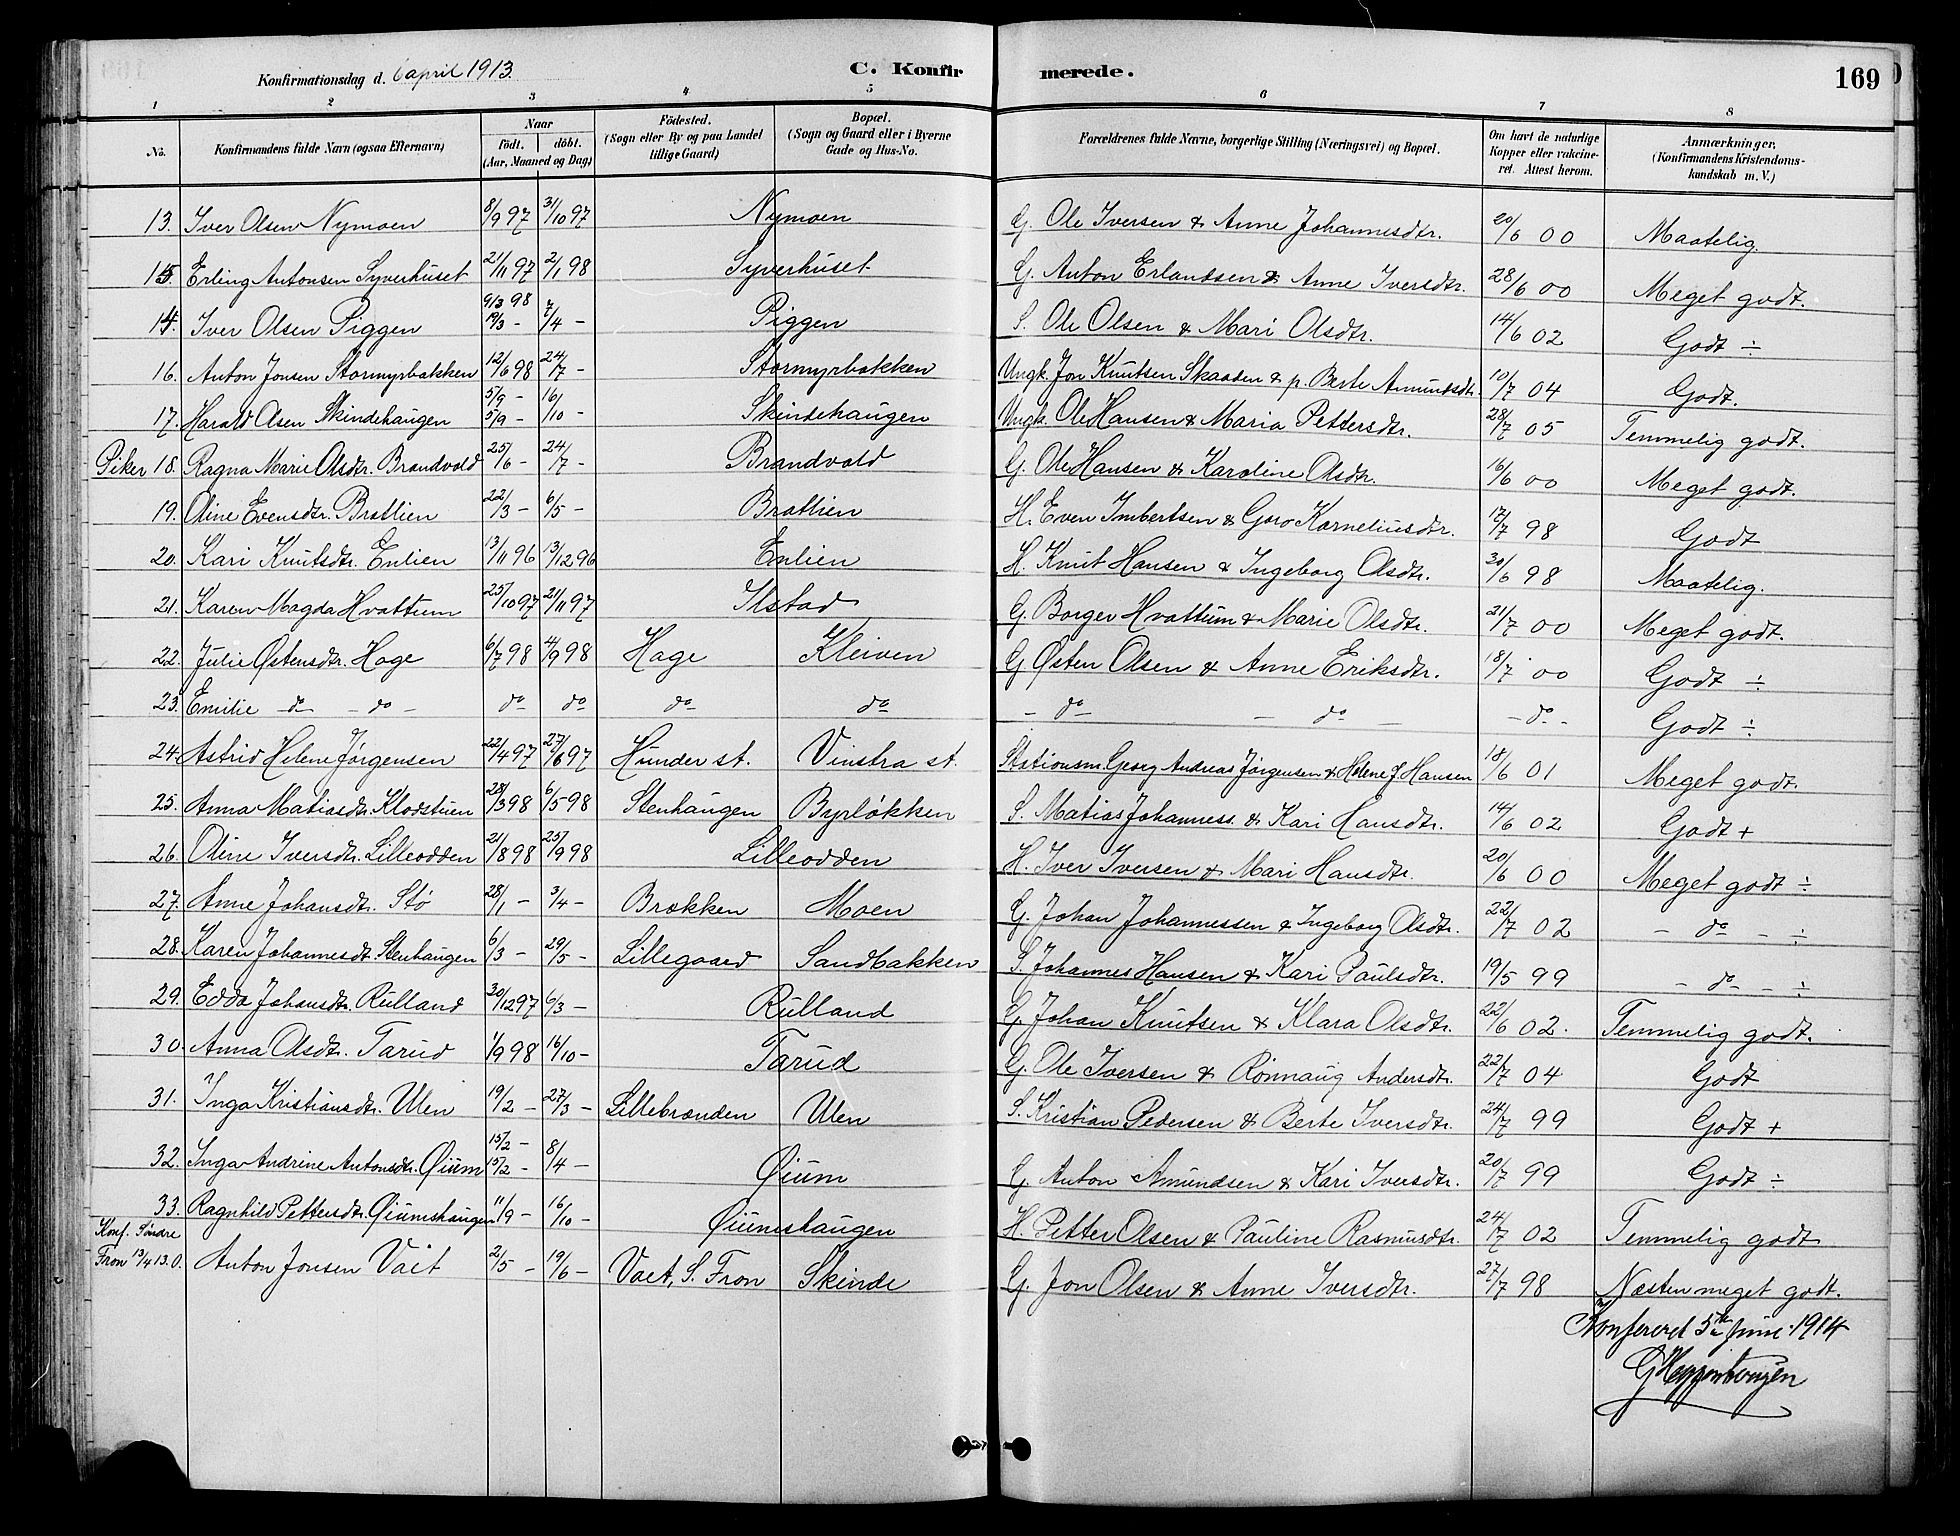 Konfirmationsdag d. 6 april 1913. C. Konfirmerede. 169
1 2 3 4 5 6 7 8
No. Konfirmandens fulde Navn (ogsaa Efternavn) Naar födt. döbt. (Aar, Maaned og Dag) Födested. (Sogn eller By og paa Landet tillige Gaard) Bopæl. (Sogn og Gaard eller i Byerne Gade og Hus-No. Forældrenes fulde Navne, borgerlige Stilling (Næringsvei) og Bopæl. Om havt de naturlige Kopper eller vakcineret. Attest herom. Anmærkninger, (Konfirmandens Kristendomskundskab m. V.)
13. Iver Olsen Nymoen 8/9 97 31/10 97 Nymoen G. Ole Iversen & Anne Johannesdtr. 20/6 00 Maatelig.
15. Erling Antonsen Syverhuset 21/11 97 2/1 98 Syverhuset G. Anton Erlandsen & Anne Iversdtr. 28/6 00 Meget godt.
14. Iver Olsen Piggen 9/3 98 19/3 - 7/4 - Piggen S. Ole Olsen & Mari Olsdtr. 14/6 02 Godt ÷
16. Anton Jonsen Stormyrbakken 12/6 98 24/7 - Stormyrbakken Ungk. Jon Knutsen Skaaden & p. Berte Amundsdtr. 10/7 04 Godt.
17. Harald Olsen Skindehaugen 5/9 - 5/9 - 16/10 - Skindehaugen Ungk. Ole Hansen & Maria Pettersdtr. 28/7 05 Temmelig godt.
Piker 18. Ragna Marie Olsdtr. Brandvold 25/6 - 24/7 - Brandvold G. Ole Hansen & Karoline Olsdtr. 16/6 00 Meget godt.
19. Oline Evensdtr. Brattlien 22/3 - 6/5 - Brattlien H. Even Imbertsen & Goro Korneliusdtr. 17/7 98 Godt
20. Kari Knutsdtr. Enlien 13/11 96 13/12 96 Enlien H. Knut Hansen & Ingeborg Olsdtr. 30/6 98 Maatelig.
21. Karen Magda Hvattum 25/10 97 21/11 97 Ilstad G. Borger Hvattum & Marie Olsdtr. 21/7 00 Meget godt.
22. Julie Østensdtr. Hage 6/7 98 4/9 98 Hage Kleiven G. Østen Olsen & Anne Eriksdtr. 18/7 00 Godt ÷
23. Emilie - do - - do - do do do do - do - - do - - do - Godt ÷
24. Astrid Helene Jørgensen 22/4 97 27/6 97 Hunder st. Vinstra st. Stationsm. Georg Andreas Jørgensen & Helene J. Hansen 18/6 01 Meget godt.
25. Anna Matiasdtr. Klodstuen 28/3 98 6/5 98 Stenhaugen Byrløkken S. Matias Johanness. & Kari Hansdtr. 14/6 02 Godt +
26. Oline Iversdtr. Lilleodden 21/8 98 25/9 98 Lilleodden H. Iver Iversen & Mari Hansdtr. 20/6 00 Meget godt ÷
27. Anne Johansdtr. Stø 28/1 - 3/4 - Brækken Moen G. Johan Johannessen & Ingeborg Olsdtr. 22/7 02 - do - ÷
28. Karen Johannesdt. Stenhaugen 6/3 - 29/5 - Lillegaard Sandbakken S. Johannes Hansen & Kari Paulsdtr. 19/5 99 - do - - ÷
29. Edda Johansdtr. Rulland 30/12 97 6/3 - Rulland G. Johan Knutsen & Klara Olsdtr. 22/6 02. Temmelig godt.
30. Anna Olsdtr. Tarud 1/9 98 16/10 - Tarud G. Ole Iversen & Rønnaug Andersdtr. 22/7 04 Godt
31. Inga Kristiansdtr. Ulen 19/2 - 27/3 - Lillebrænden Ulen S. Kristian Pedersen & Berte Iversdtr. 24/7 99 Godt +
32. Inga Andrine Antonsdtr. Øium 15/2 - 15/2 - 8/4 - Øium G. Anton Amundsen & Kari Iversdtr. 20/7 99 Godt ÷
33. Ragnhild Pettersdtr. Øiumshaugen 11/9 - 16/10 - Øiumshaugen H. Petter Olsen & Pauline Rasmusdtr. 24/7 02 Temmelig godt
Konf. Søndre
Fron 13/4 13. 0. Anton Jonsen Vait 2/5 - 19/6 - Vaet, S. Fron Skinde G. Jon Olsen & Anne Iversdtr. 27/7 98 Næsten meget godt.
Konfereret 5te juni 1914